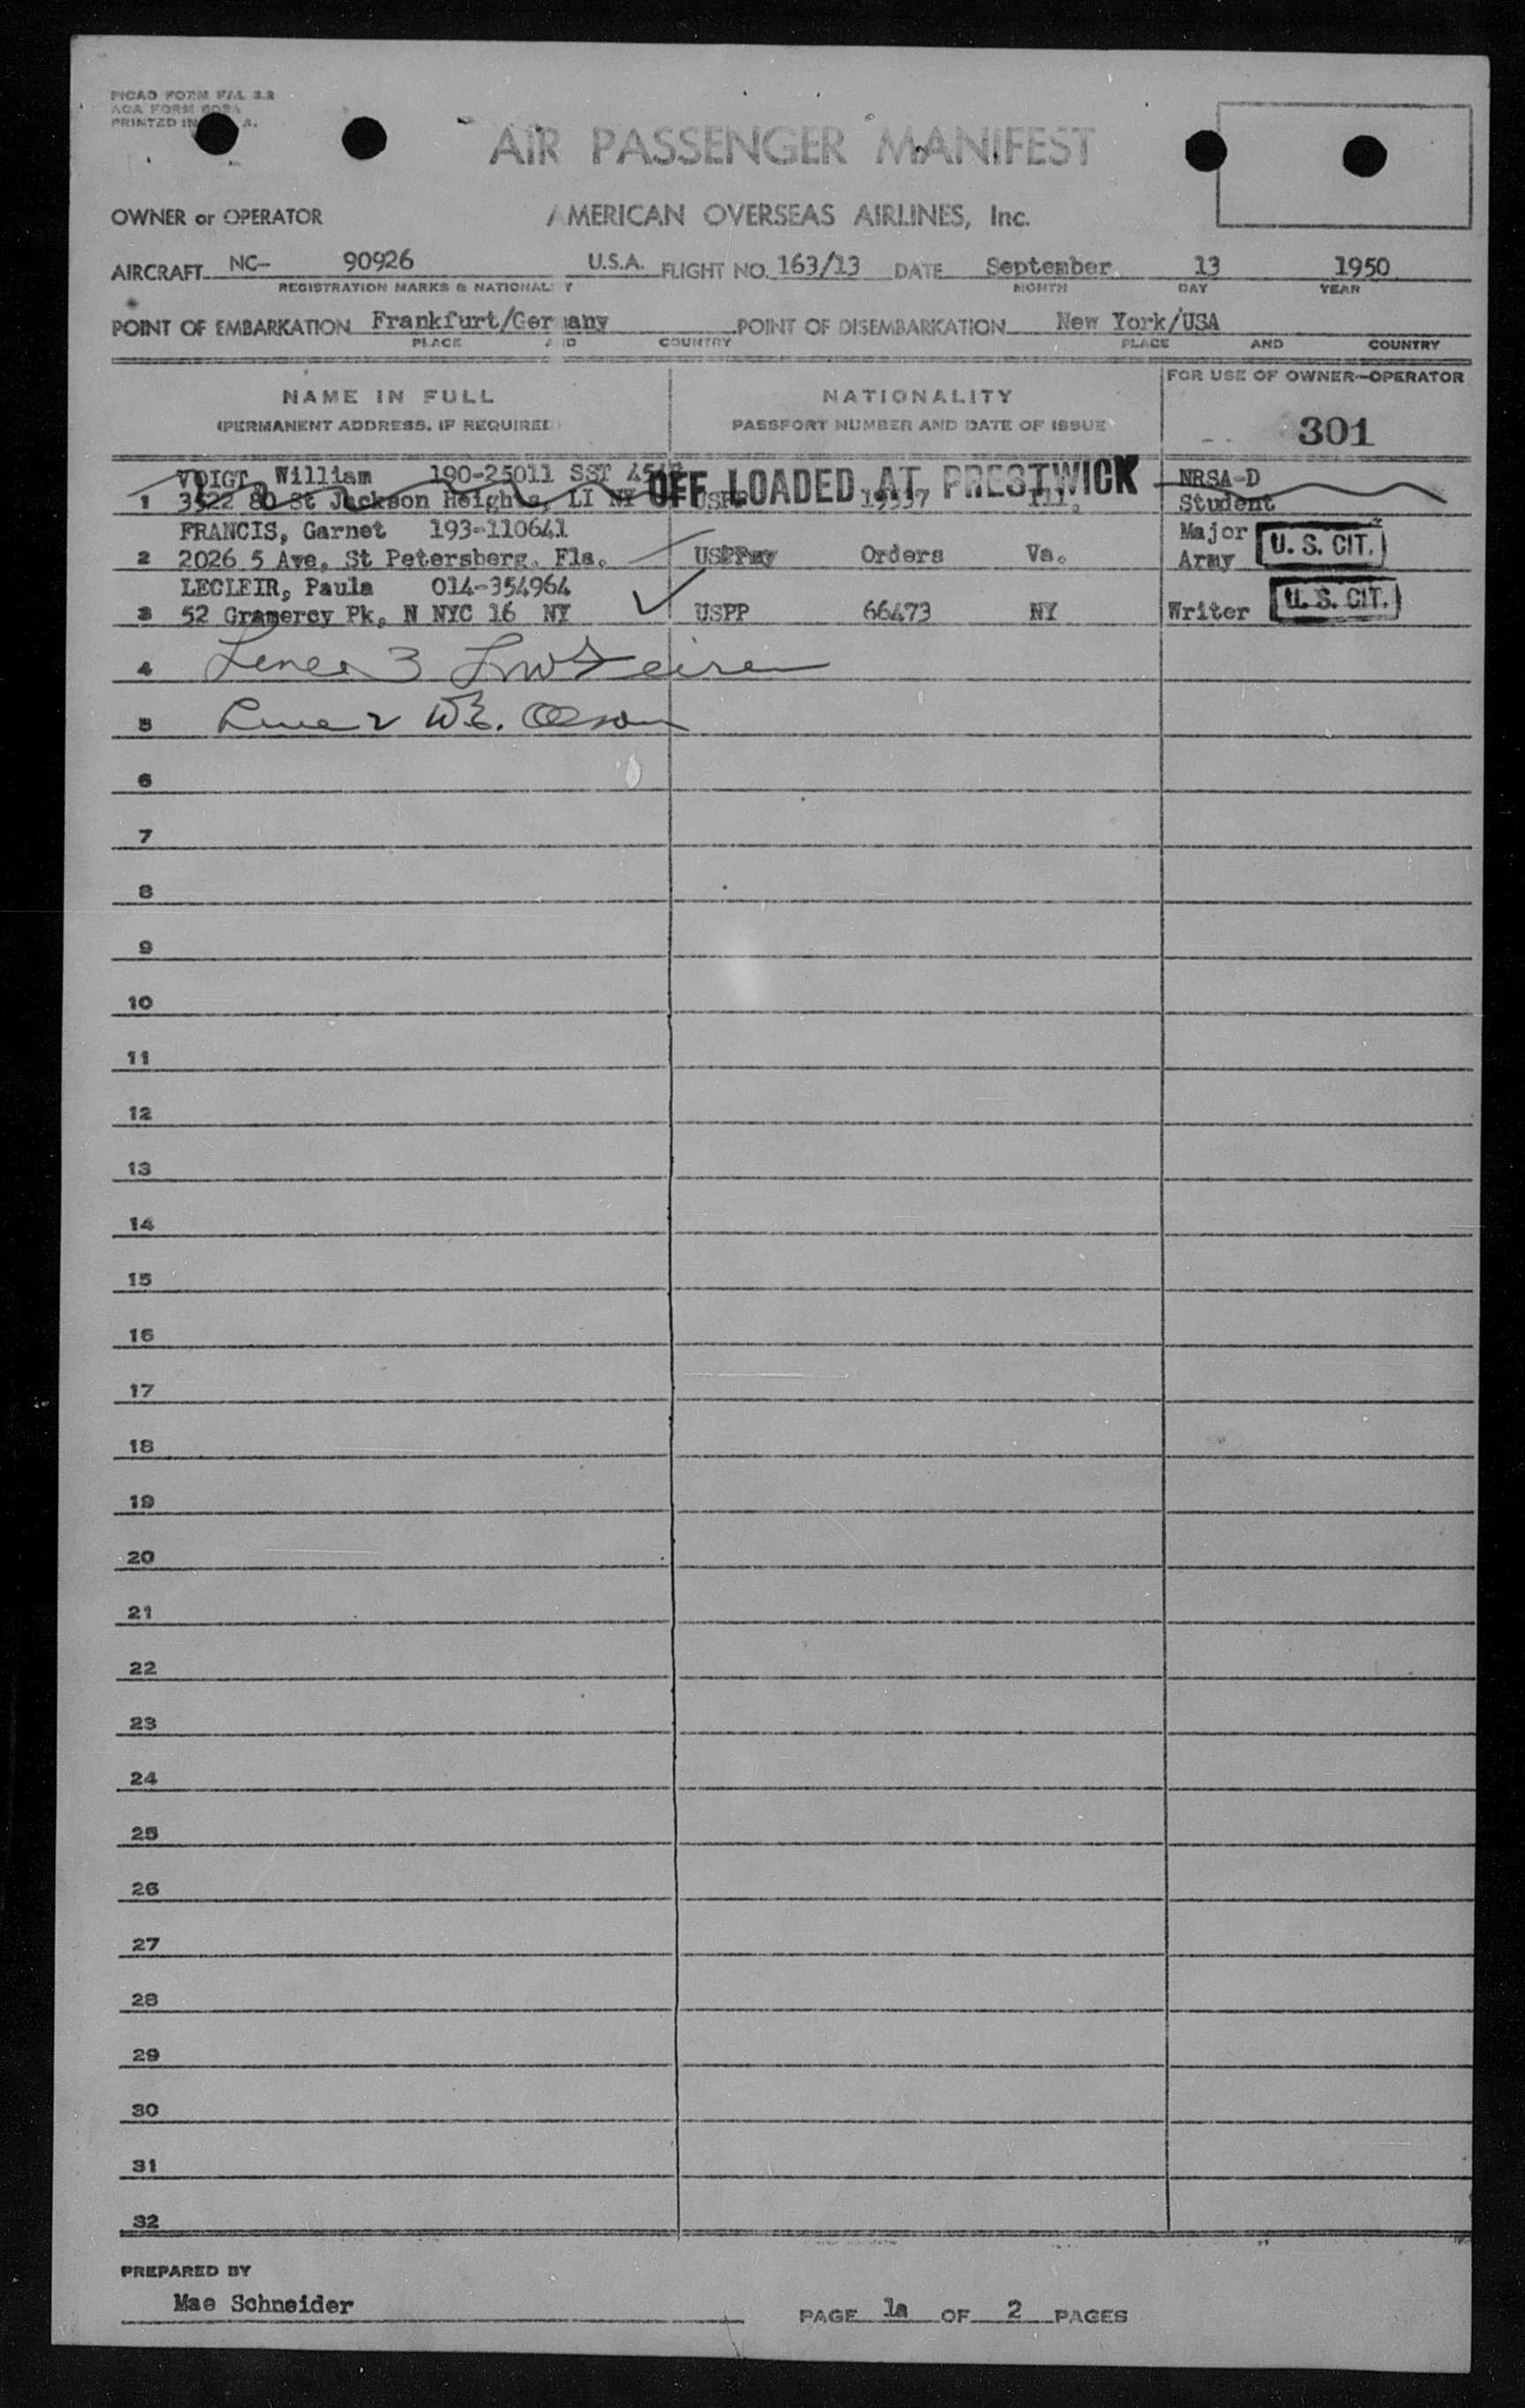 PICAO FORM FAL 3.2
AOA FORM
PRINTED IN A.
AIR PASSENGER MANIFEST
OWNER or OPERATOR AMERICAN OVERSEAS AIRLINES, Inc.
AIRCRAFT NC- 90926 U.S.A. FLIGHT NO. 163/13 DATE September 13 1950
REGISTRATION MARKS & NATIONALITY MONTH DAY YEAR
POINT OF EMBARKATION Frankfurt/Germany POINT OF DISEMBARKATION New York/USA
PLACE AND COUNTRY PLACE AND COUNTRY
NAME IN FULL NATIONALITY FOR USE OF OWNER-OPERATOR
(PERMANENT ADDRESS, IF REQUIRED) PASSPORT NUMBER AND DATE OF ISSUE 301
VOIGT, William 190-25011 SST OFF LOADED AT PRESTWICK NRSA-D
1 3522 80 St Jackson Heights, LI NY Ill. Student
FRANCIS, Garnet 193-110641 Major U. S. CIT.
2 2026 5 Ave, St Petersberg, Fla. Orders Va. Army
LECLEIR, Paula 014-354964
3 52 Gramercy Pk, N NYC 16 NY USPP 66473 NY Writer U. S. CIT.
4 Lines 3
5 Line 2 W.E. Olson
6
7
8
9
10
11
12
13
14
15
16
17
18
19
20
21
22
23
24
25
26
27
28
29
30
31
32
PREPARED BY
Mae Schneider PAGE 1a OF 2 PAGES